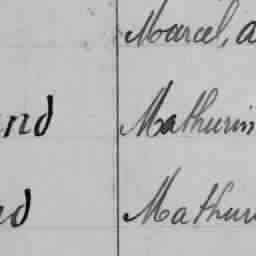 Marcel, a
nd Mathurin
nd Mathur